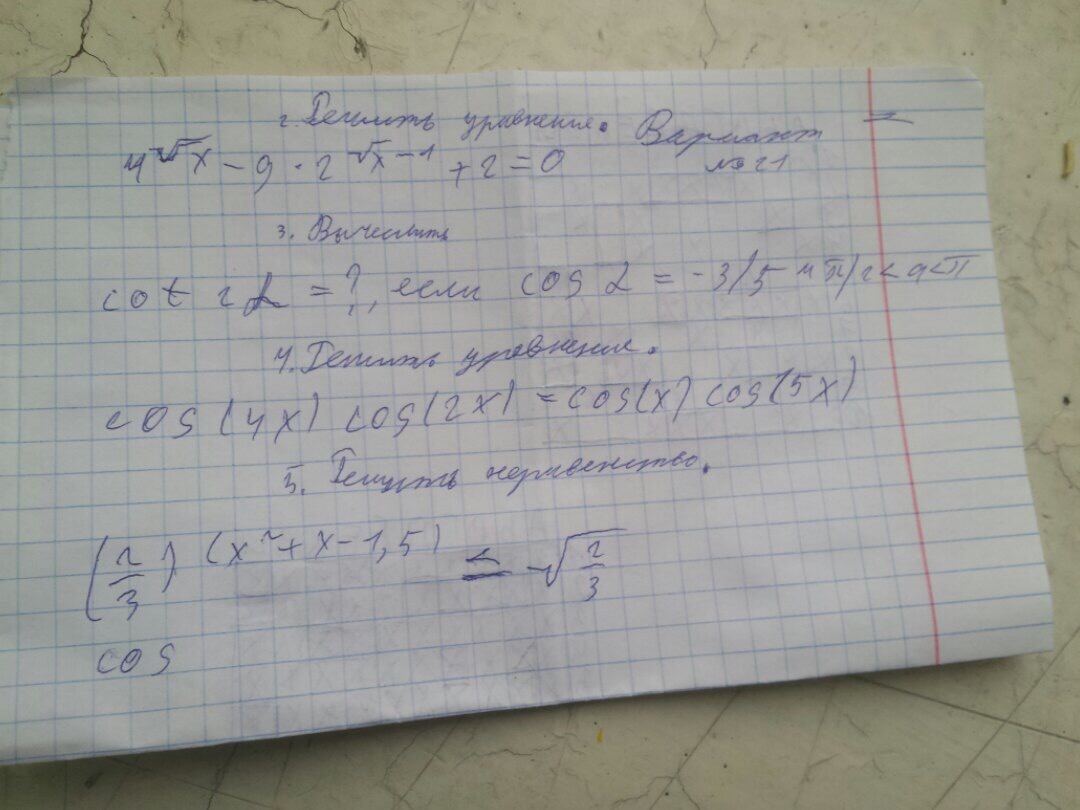 2. Решить уравнение. Вариант
4^√x - 9 · 2^√x - 1 + 2 = 0 №21
3. Вычислить
cot 2α = ?, если cos α = -3/5 и π/2 < α < π
4. Решить уравнение.
cos(4x) cos(2x) = cos(x) cos(5x)
5. Решить неравенство.
(2/3)^(x²+x-1,5) ≤ √2/3
cos